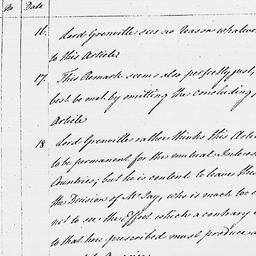 No Date
16. Lord Grenville sees no reason whatever
to this Article
17. This Remark seems also perfectly just,
best be met by omitting the concluding
Article
18 Lord Grenville rather thinks this
to be permanent for the mutual Interest
Countries; but he is content to leave this
the Decision of Mr Jay, who is much too
not to see the Effect which a contrary
to that here prescribed must produce